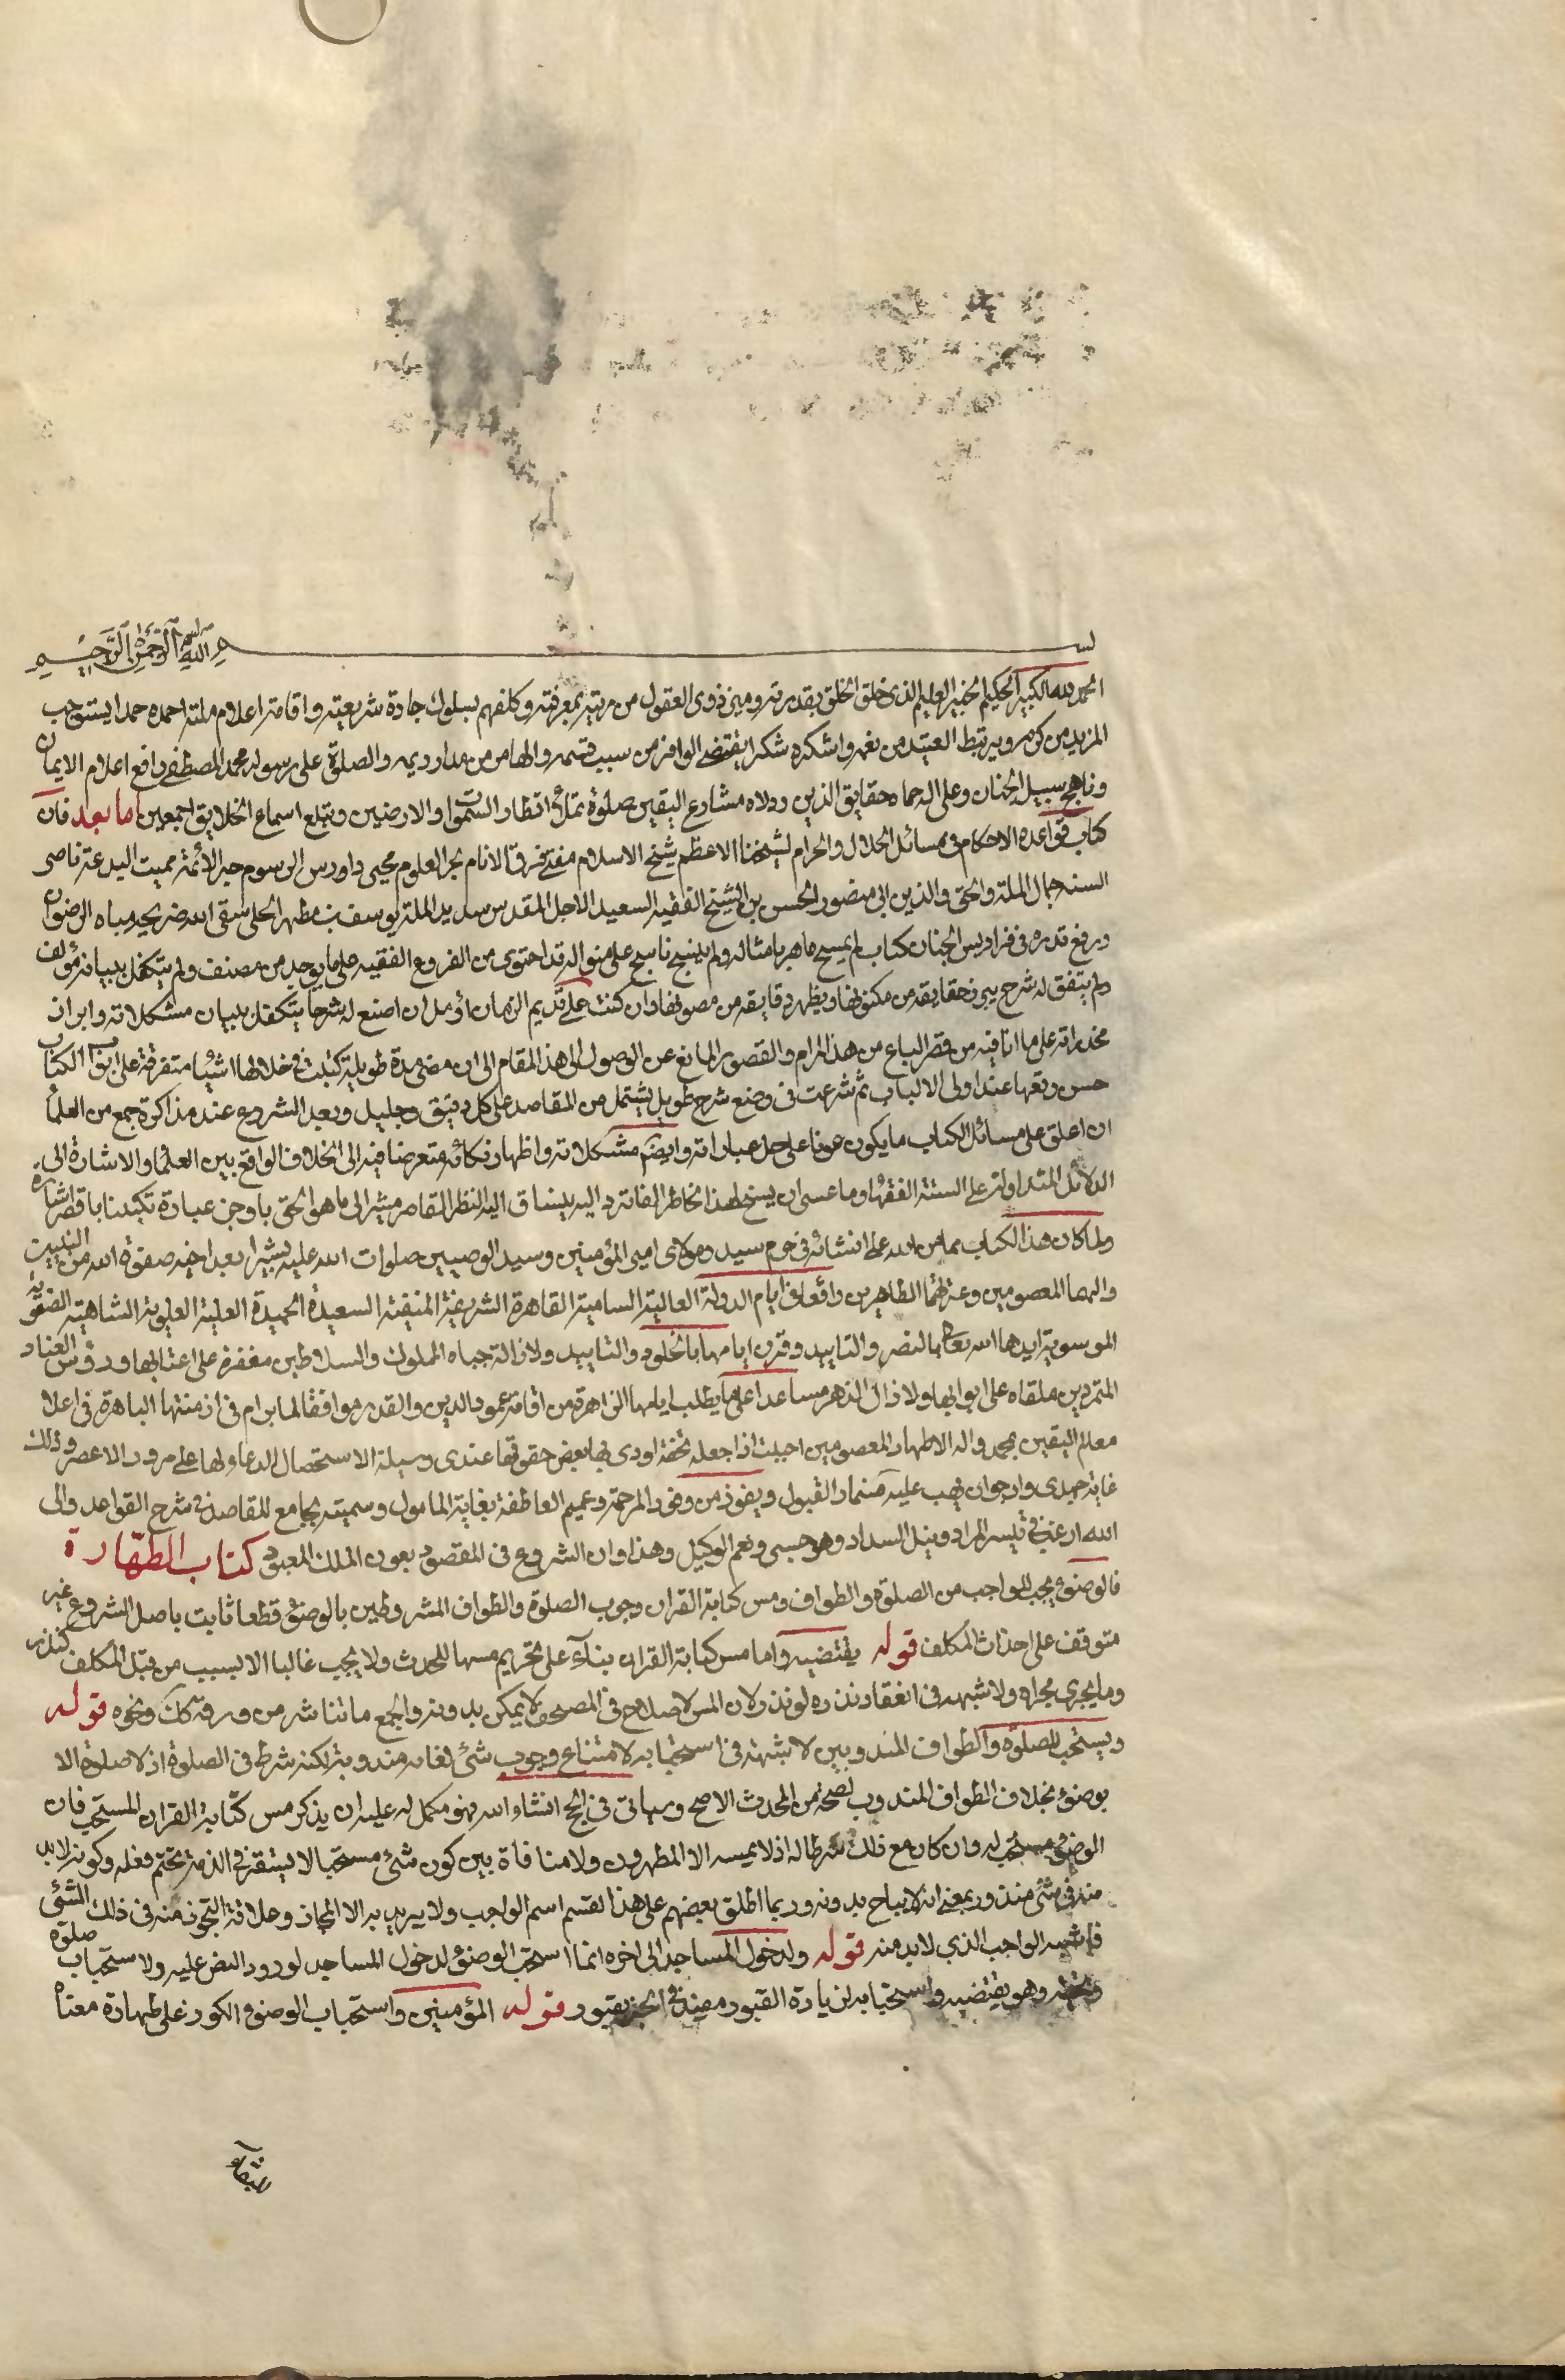 بسم الله الرحمن الرحيم
الحمد لله الكبير الحكيم الخبير العليم الذي خلق الخلق بقدرته وميز ذوى العقول من بريته بمعرفته وكلفهم بسلوك جادة شريعته واقامة اعلام ملته احمده حمدا يستوجب
المزيد من كرمه ويرتبط العتيد من نعمه واشكره شكرا يقتضي الوافر من سيب قسمه والهامر من مدار ديمه والصلوة على رسوله محمد المصطفى رافع اعلام الايمان
وناهج سبيل الجنان وعلى اله حماه حقايق الدين وولاه مشارع اليقين صلوة تملأ اقطار السموات والارضين وتبلغ اسماع الخلايق اجمعين اما بعد فان
كتاب قواعد الاحكام فى مسائل الحلال والحرام لشيخنا الاعظم شيخ الاسلام مفتي فرق الانام بحر العلوم محيى داورس الرسوم حبر الائمة مميت البدعة ناصر
السنه جمال الملة والحق والدين ابى منصور الحسن بن الشيخ الفقيه السعيد الاجل المقدس سديد الملة يوسف بن مطهر الحلى سقى الله ضريحه مياه الرضوان
ورفع قدره فى فراديس الجنان كتاب لم يسمح ماهر بامثاله ولم ينسج ناسج على منواله قد احتوى من الفروع الفقيه على ما يوجد من مصنف ولم يتكفل ببيانه مؤلف
ولم يتفق له شرح يبرز حقايقه من مكنونها ويظهر دقايقه من مصونها وان كنت على قديم الزمان أؤمل ان اصنع له شرحا يتكفل ببيان مشكلاته وابراز
مخدراته على ما انا فيه من قصر الباع من هذا المرام والقصور المانع عن الوصول الى هذا المقام الى ان مضى مدة طويلة كتبت فى خلالها اشياء متفرقة على ابواب الكتاب
حسن وقعها عند اولى الالباب ثم شرعت فى وضع شرح طويل يشتمل من المقاصد على كل دقيق وجليل وبعد الشروع عند مذاكرة جمع من العلماء
ان اعلق على مسائل الكتاب ما يكون عونا على حل عباراته وايضاح مشكلاته واظهار نكاته متعرضا فيه الى الخلاف الواقع بين العلماء والاشارة الى
الدلائل المتداولة على السنة الفقهاء وما عسى ان يسنح لهذا الخاطر الفاتر واليه ينساق اليه النظر القاصر مشيرا الى ما هو الحق باوجز عبارة تكبدنا باقصر اشارة
ولما كان هذا الكتاب مما من الله على انشائه فى حرم سيد ومولاى امير المؤمنين وسيد الوصيين صلوات الله عليه بشيرا بعد اخيه صفوة الله من النبيين
والهما المعصومين وعترتهما الطاهرين واقعا فى ايام الدولة العالية السامية القاهرة الشريفة المنيفة السعيدة الحميدة العلية العلوية الشاهية الصفوية
الموسوية ايدها الله تعالى بالنصر والتاييد وقرن ايامها بالخلود والتابيد ولا زالت جباه الملوك والسلاطين مغفرة على اعتابها ورؤس العناد
المتمردين ملقاه على ابوابها ولا زال الدهر مساعدا على ما يطلب ايامها الزاهرة من اقامة عمود الدين والقدر موافقا لما يرام فى ازمنتها الباهرة فى اعلا
معالم اليقين بمحمد واله الاطهار المعصومين احببت اذ اجعله تحفة اودى بها بعض حقوقها عندى وسيلة الا ستحصال الدعاء لها على مرور الاعصر وذلك
غاية جهدى وارجو ان يهب عليه نسمات القبول ويفوز من وفور المرحمة وعميم العاطفة بغاية المامول وسميته بجامع المقاصد فى شرح القواعد والى
الله ارغب فى تيسر المراد ونيل السداد وهو حسبى ونعم الوكيل وهذا وان الشروع فى المقصود بعون الملك المعبود كتاب الطهارة
فالوضوء يجب للواجب من الصلوة والطواف ومس كتابة القران وجوب الصلوة والطواف المشروطين بالوضوء قطعا ثابت باصل الشروع غير
متوقف على احداث المكلف قوله يقتضيه واما مس كتابة القران بناء على تحريم مسها للمحدث ولا يجب غالبا الا بسبب من قبل المكلف كنذر
وما يجرى مجراه ولا شبهه فى انعقاد نذره لو نذر لان المس لاصلاح فى المصحف لا يمكن بدونه والجمع ما تناثر من ورقة كان ونحوه قوله
ويستحب للصلوة والطواف المندوبين لا شبهة فى استحبابه لامتناع وجوب شئ لغايه مندوبة لكنه شرط فى الصلوة اذ لا صلوة الا
بوضوء بخلاف الطواف المندوب لصحته من المحدث الاصح وسياتى فى الحج انشاء الله فهو مكمل له عليه ان يذكر مس كتابة القران المستحب فان
الوضوء مستحب له وان كان مع ذلك شرطا له اذ لا يمسه الا المطهرون ولا منافاة بين كون شئ مستحبا لا يستقر فى الذمة تحتم فعله وكونه لا بد
منه فى شئ مندوب بمعنى انه لا يباح بدونه وربما اطلق بعضهم على هذا القسم اسم الواجب ولا يريد به الا المجاز وعلاقة التجوز منه فى ذلك الشئ
فاشبه الواجب الذي لا بد منه قوله ولدخول المساجد الى اخره انما استحب الوضوء لدخول المساجد لورود النص عليه ولاستحباب صلوة
وهو يقتضيه واستحبابه لزيارة القبور مقيد فى الخبر بقبور قوله المؤمنين واستحباب الوضوء الكون على طهارة معناه